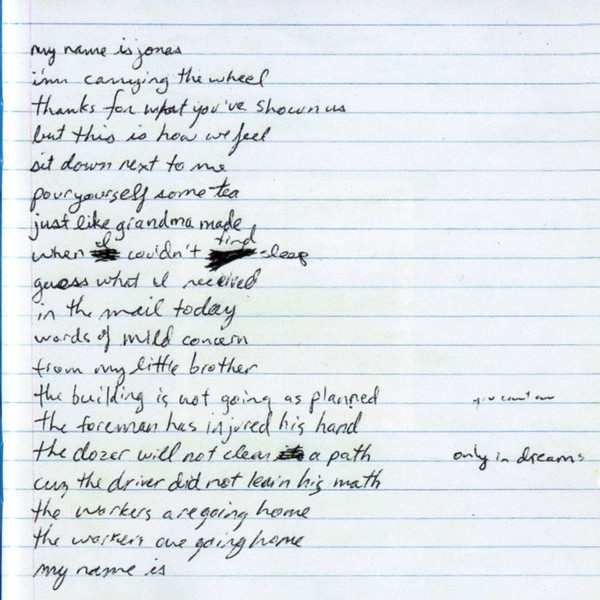 my name is jonas
i'm carrying the wheel
thanks for what you've shown us
but this is how we feel
sit down next to me
pour yourself some tea
just like grandma made
when I couldn't find sleep
guess what I received
in the mail today
words of mild concern
from my little brother
the building is not going as planned
the foreman has injured his hand
the dozer will not clear a path
only in dreams
cuz the driver did not learn his math
the workers are going home
the workers are going home
my name is